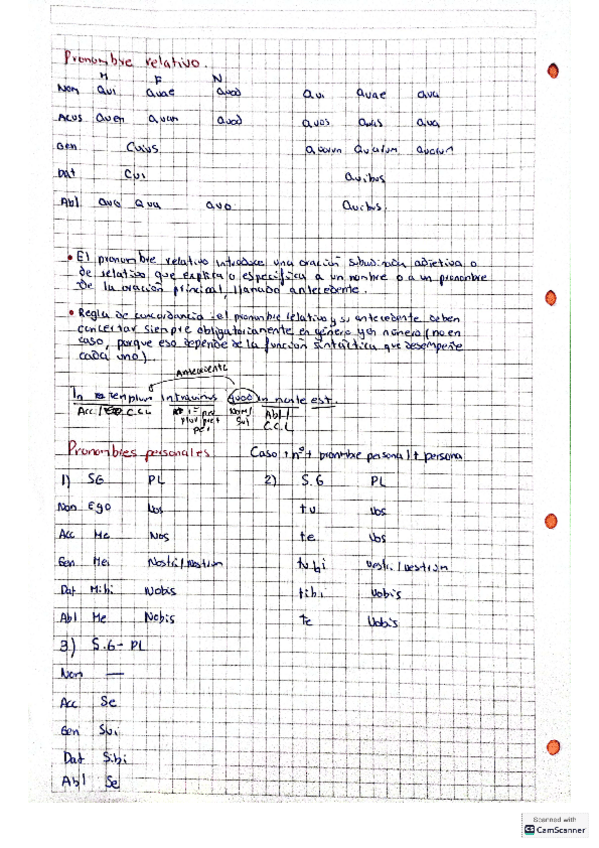 Pronombre relativo.
M F N
Nom qui quae quod qui quae qua
Acus quem quam quod quos quas qua
Gen Cuius quorum quarum quorum
Dat Cui quibus
Abl quo qua quo quibus.
• El pronombre relativo introduce una oración subordinada adjetiva o
de relativo que explica o especifica a un nombre o a un pronombre
de la oración principal, llamado antecedente.
• Regla de concordancia: el pronombre relativo y su antecedente deben
concertar siempre obligatoriamente en género y en número (no en
caso, porque eso depende de la función sintáctica que desempeñe
cada uno).
Antecedente
In templum intravimus quod in monte est.
Acc / C.C.L 1ª per Nom/ Abl /
plu pret Suj C.C.L
per
Pronombres personales Caso + nº + pronombre personal + persona
1) SG PL 2) S.G PL
Nom Ego Nos tu Vos
Acc Me Nos te Vos
Gen Mei Nostri/Nostrum tubi Vestri/Vestrum
Dat Mihi Nobis tibi Vobis
Abl Me Nobis te Vobis
3) S.G - PL
Nom —
Acc Se
Gen Sui
Dat Sibi
Abl Se
Scanned with
CS CamScanner